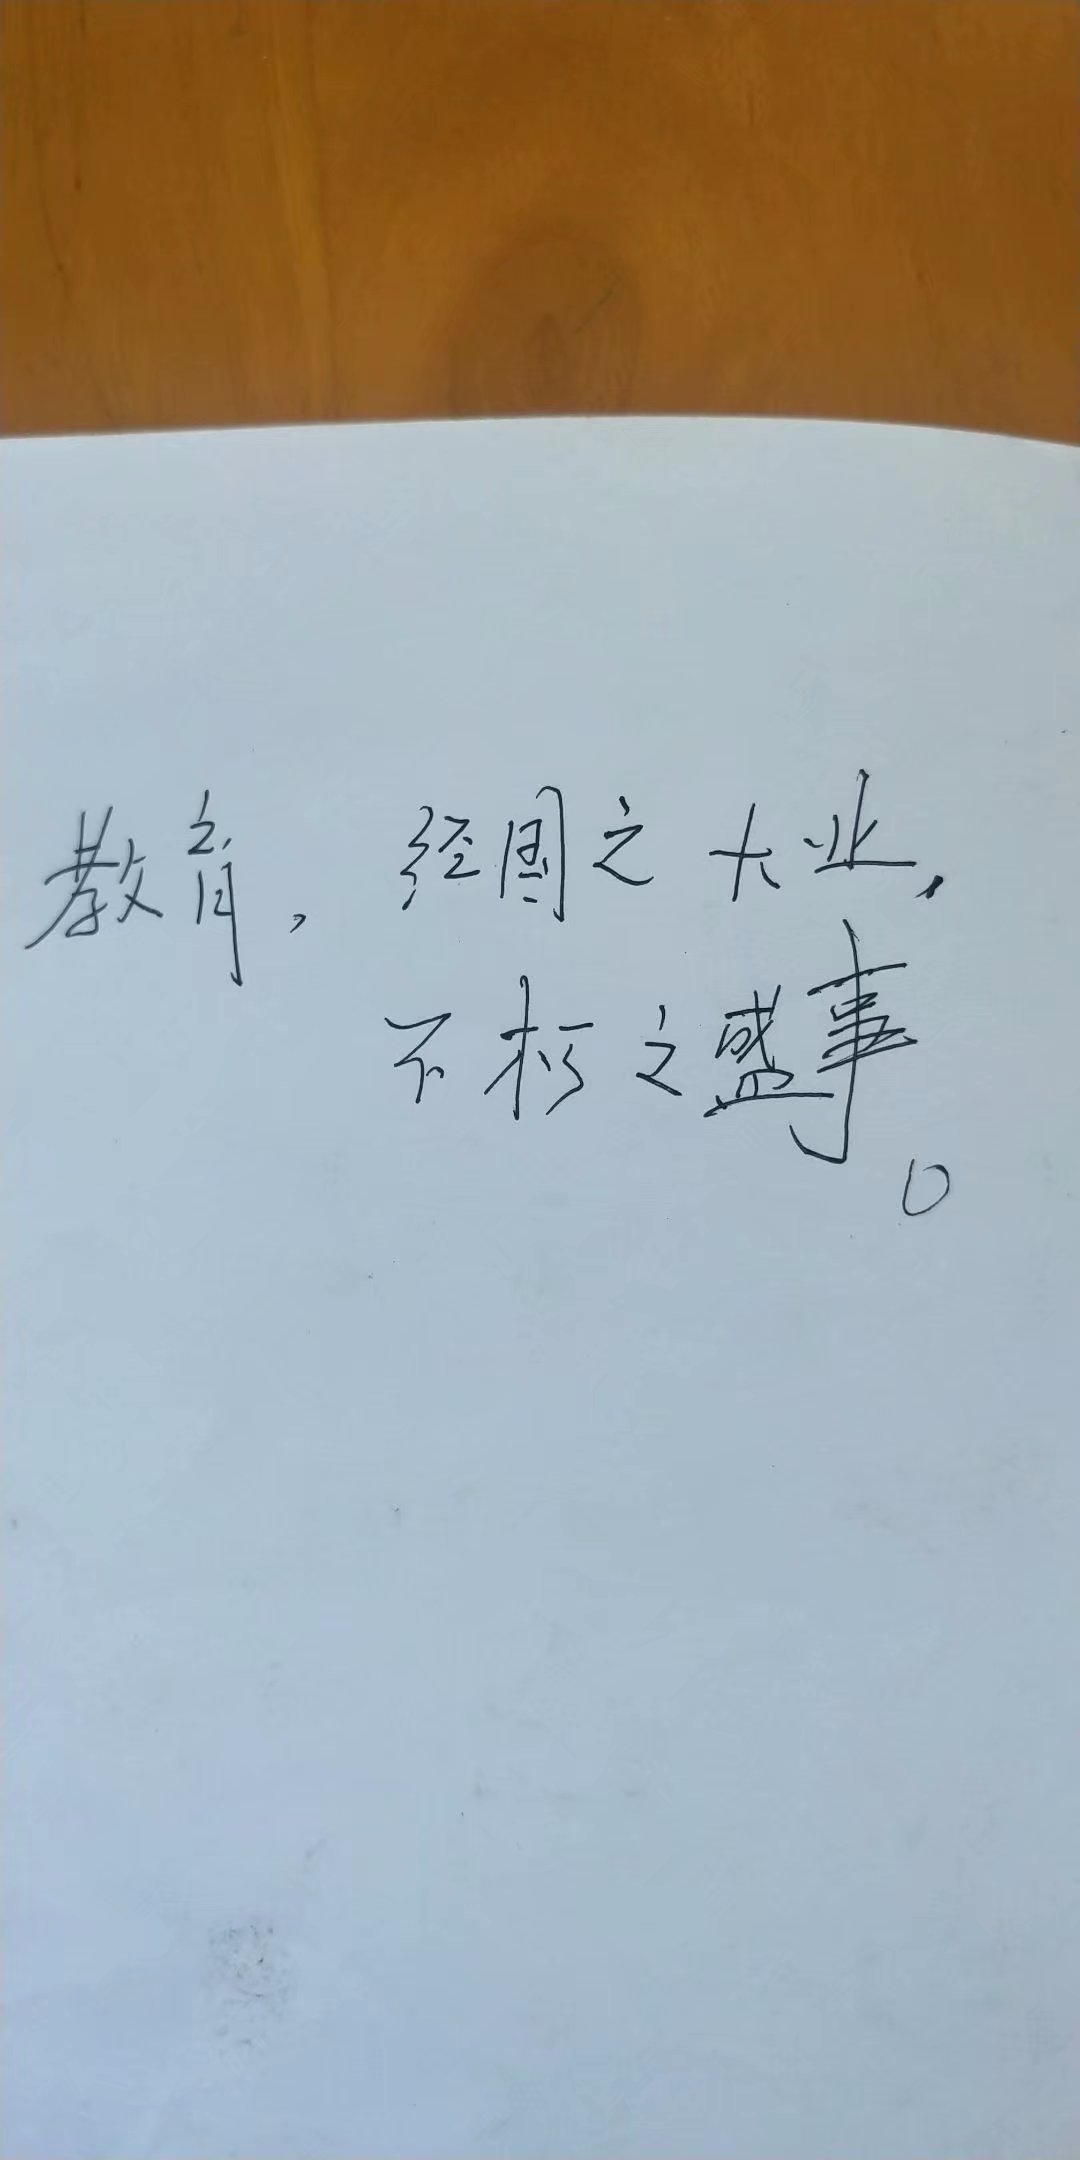 教育，经国之大业，
不朽之盛事。